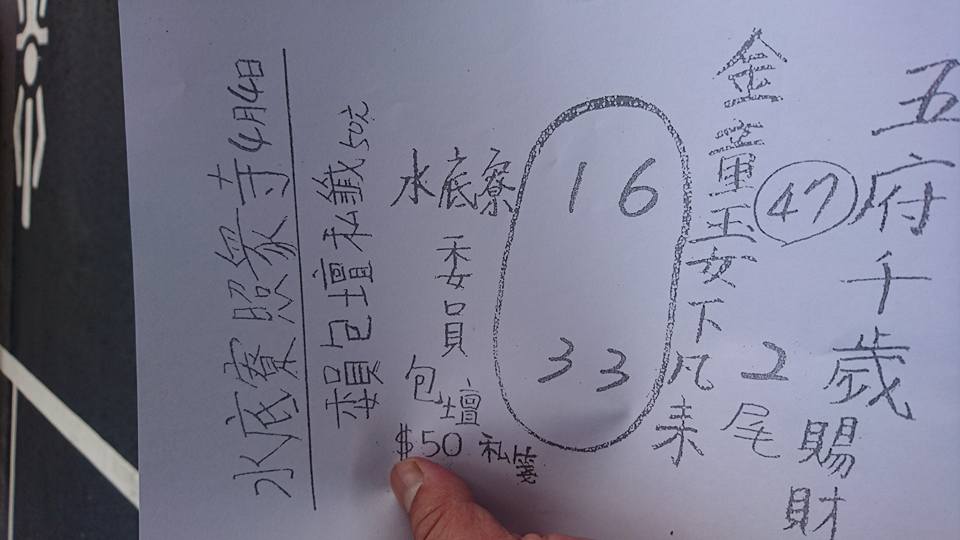 五府千歲賜財
47
2尾
金童玉女下凡来
16
33
水底寮
委員
包壇
$50 私箋
賴包壇私籤50元
水底寮照眾寺4月4日